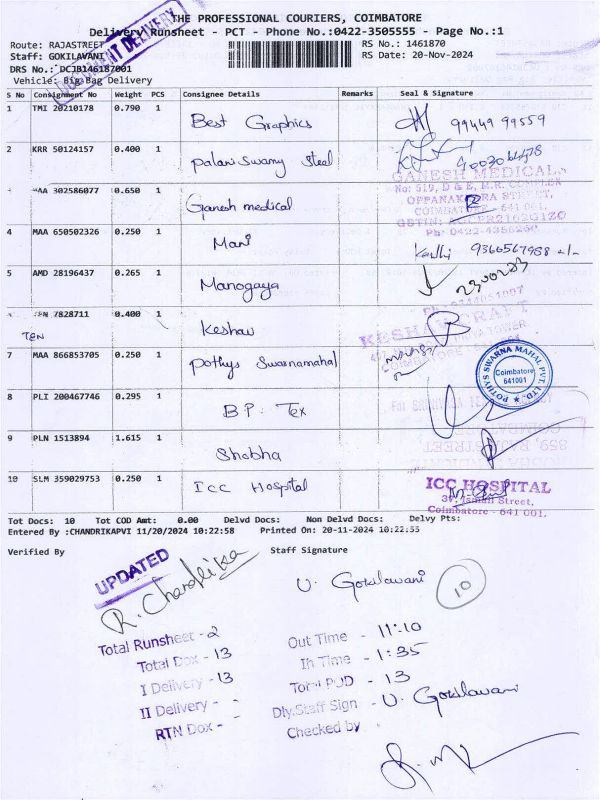 THE PROFESSIONAL COURIERS, COIMBATORE
Delivery Runsheet - PCT - Phone No.:0422-3505555 - Page No.:1
Route: RAJASTREET
RS No.: 1461870
Staff: GOKILAVANI
RS Date: 20-Nov-2024
DRS No.: DCJB146187001
Vehicle: Big Bag Delivery
DELIVERY
S No Consignment No Weight PCS Consignee Details Remarks Seal & Signature
1 TMI 20210178 0.790 1 Best Graphics 99449 99559
2 KRR 50124157 0.400 1 Palani Swamy Steel
GANESH MEDICAL
No: 519, D & E, R.R. COMPLEX
COIMBATORE - 641 001.
MAA 302586077 0.650 1 Ganesh medical
4 MAA 650502326 0.250 1 Mani 9366567988
5 AMD 28196437 0.265 1 Manogaya
7828711 0.400 1 Keshav
TEN
7 MAA 866853705 0.250 1 Pothys Swarnamahal
POTHYS SWARNA MAHAL PVT. LTD.
Coimbatore
641001
8 PLI 200467746 0.295 1 B.P. Tex
9 PLN 1513894 1.615 1 Shobha
10 SLM 359029753 0.250 1 ICC Hospital
ICC HOSPITAL
Street,
Coimbatore - 641 001.
Tot Docs: 10 Tot COD Amt: 0.00 Delvd Docs: Non Delvd Docs: Delvy Pts:
Entered By :CHANDRIKAPVI 11/20/2024 10:22:58 Printed On: 20-11-2024 10:22:55
Verified By Staff Signature
UPDATED
R. Chandrika
U. Gokilavani
10
Total Runsheet - 2
Total Dox - 13
I Delivery - 13
II Delivery -
RTN Dox -
Out Time - 11:10
In Time - 1:35
Total POD - 13
Dly.Staff Sign - U. Gokilavani
Checked by